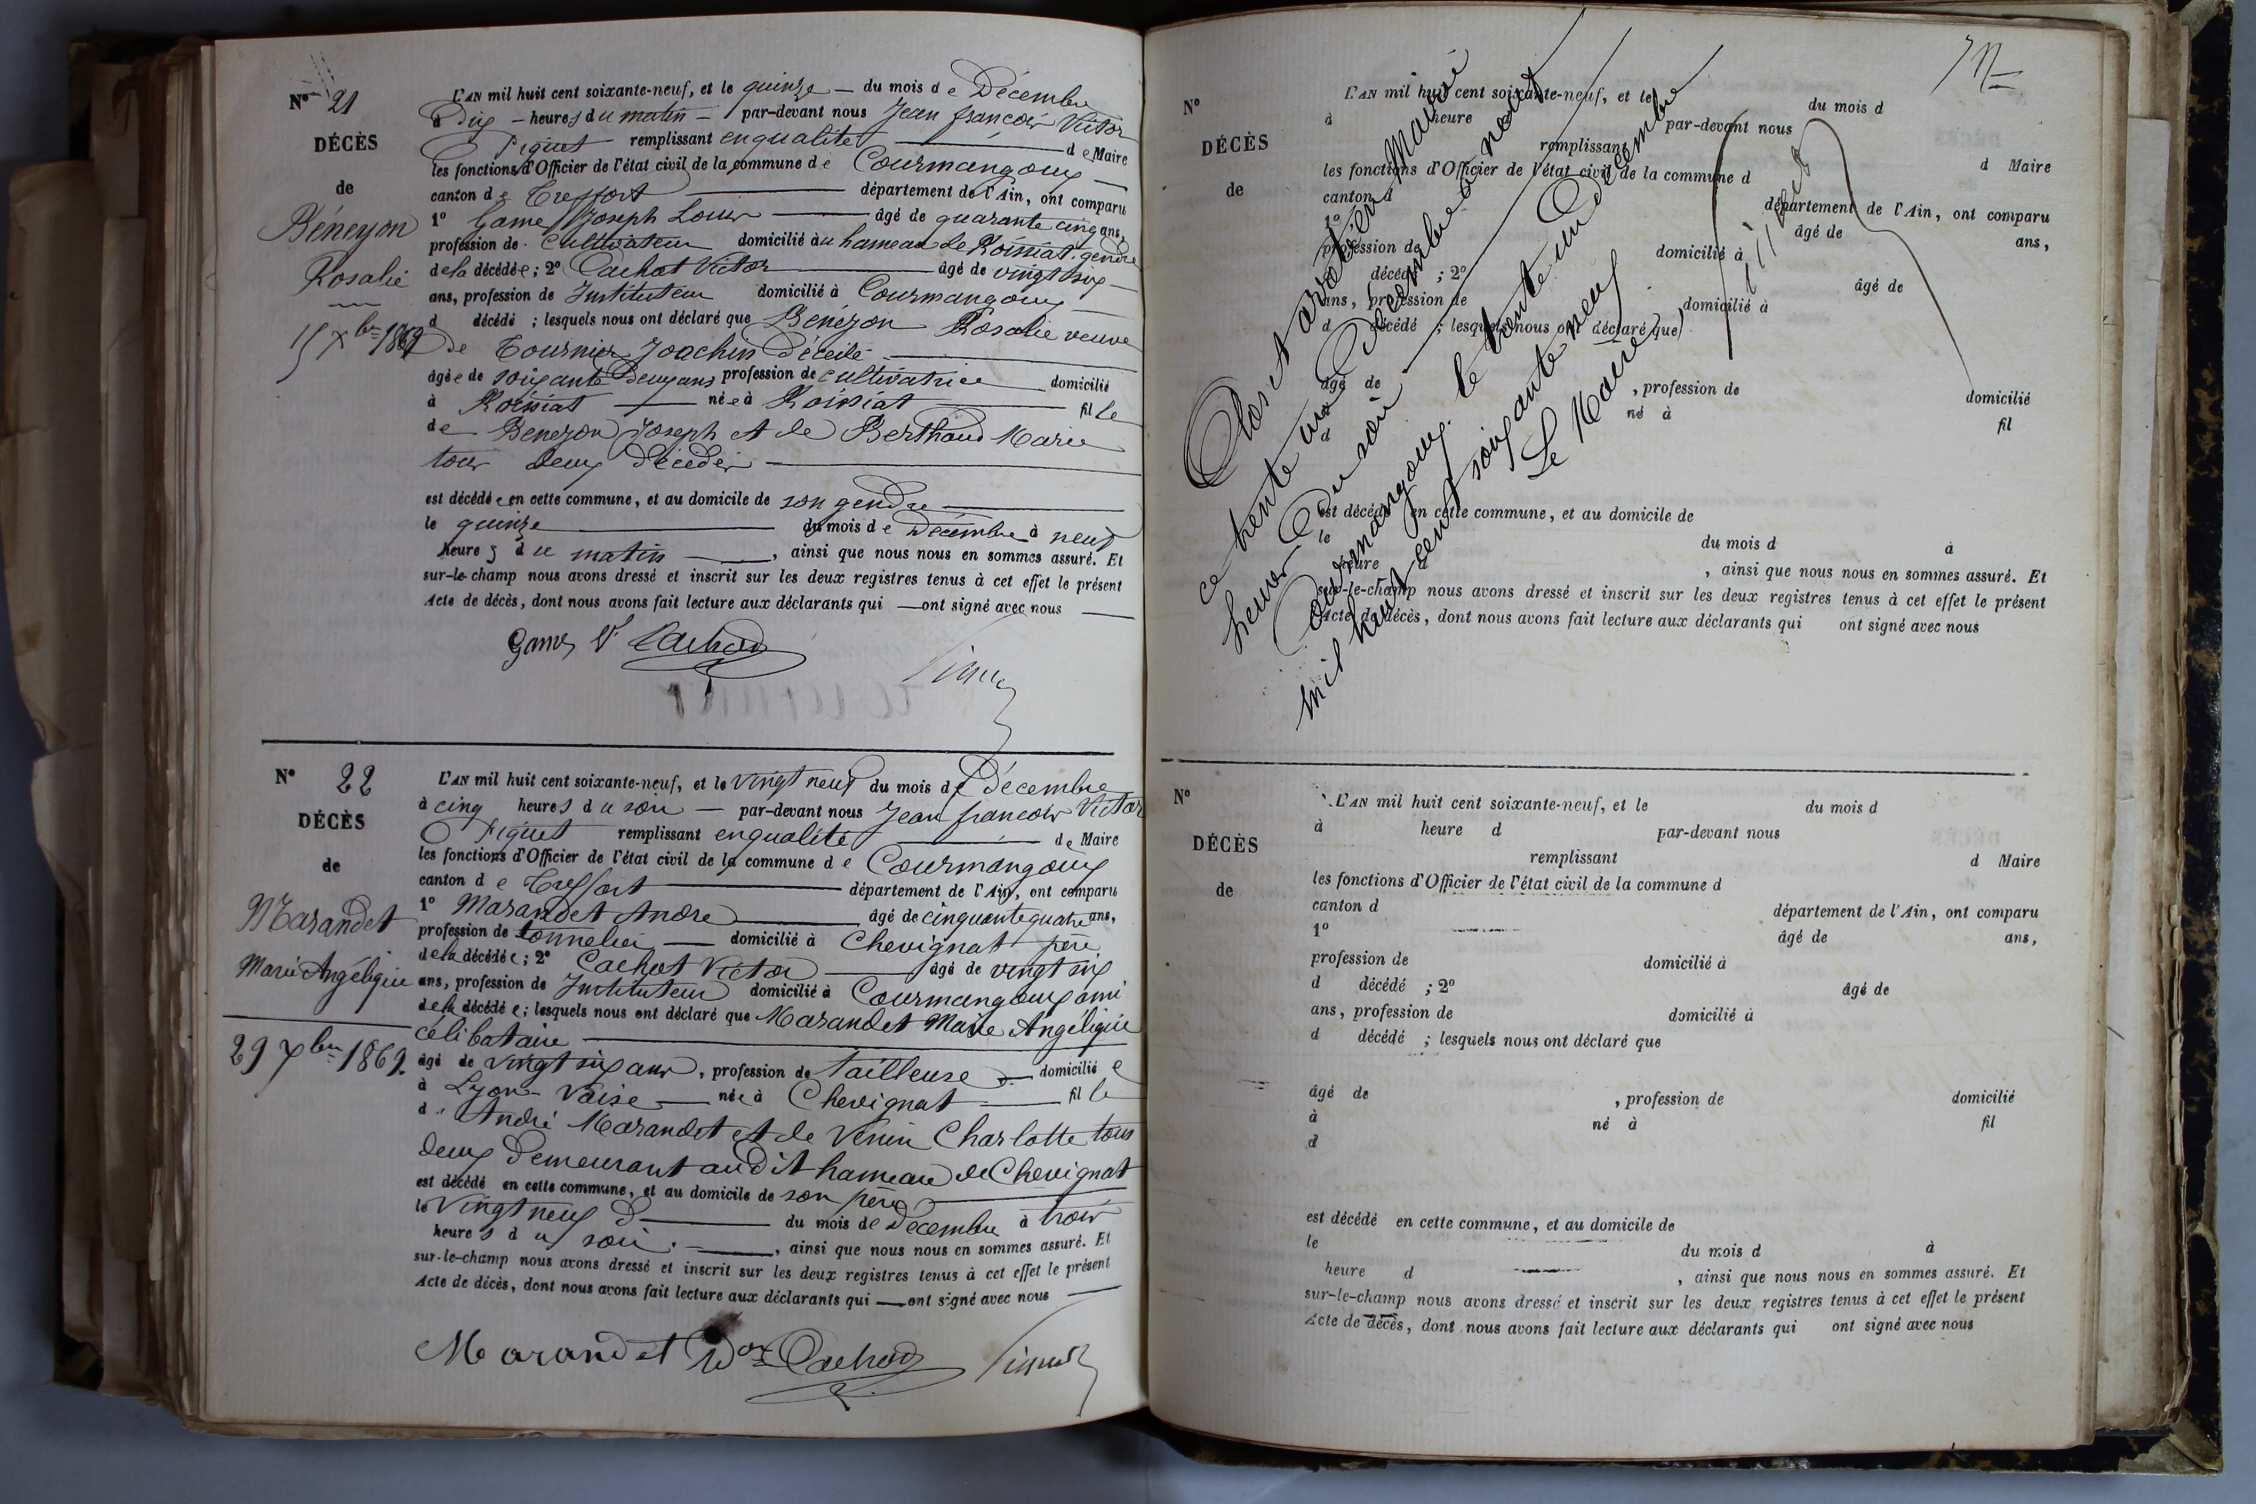 N° 21
DÉCÈS
de
Bénezon
Rosalie
15 Xbre 1869
L'AN mil huit cent soixante-neuf, et le quinze — du mois de Décembre
à dix — heures du matin — par-devant nous Jean françois Victor
Piquet remplissant en qualité de Maire
les fonctions d'Officier de l'état civil de la commune de Courmangoux
canton de Treffort département de l'Ain, ont comparu
1° Game Joseph Louis âgé de quarante cinq ans,
profession de cultivateur domicilié au hameau de Roissiat gendre
de la décédée ; 2° Cachot Victor âgé de vingt six
ans, profession de Instituteur domicilié à Courmangoux
d décédé ; lesquels nous ont déclaré que Benezon Rosalie veuve
de Tournier Joachin décédé
âgée de soixante deux ans profession de cultivatrice domicilié
à Roissiat née à Roissiat fille
de Benezon Joseph et de Berthaud Marie
tous deux décédés
est décédée en cette commune, et au domicile de son gendre
le quinze du mois de Décembre à neuf
heures du matin , ainsi que nous nous en sommes assuré. Et
sur-le-champ nous avons dressé et inscrit sur les deux registres tenus à cet effet le présent
Acte de décès, dont nous avons fait lecture aux déclarants qui — ont signé avec nous
Game Vr Cachod
N° 22
DÉCÈS
de
Marandet
Marie Angélique
29 Xbre 1869.
L'AN mil huit cent soixante-neuf, et le vingt neuf du mois de Décembre
à cinq heures du soir — par-devant nous Jean françois Victor
Piquet remplissant en qualité de Maire
les fonctions d'Officier de l'état civil de la commune de Courmangoux
canton de Treffort département de l'Ain, ont comparu
1° Marandet André âgé de cinquante quatre ans,
profession de tonnelier domicilié à Chevignat père
de la décédée ; 2° Cachot Victor âgé de vingt six
ans, profession de Instituteur domicilié à Courmangoux ami
de la décédée ; lesquels nous ont déclaré que Marandet Marie Angélique
célibataire
âgé de vingt six ans, profession de tailleuse domicilié e
à Lyon-Vaise née à Chevignat fille
d André Marandet et de Venin Charlotte tous
deux demeurant audit hameau de Chevignat
est décédé en cette commune, et au domicile de son père
le vingt neuf d du mois de Décembre à trois
heures du soir , ainsi que nous nous en sommes assuré. Et
sur-le-champ nous avons dressé et inscrit sur les deux registres tenus à cet effet le présent
Acte de décès, dont nous avons fait lecture aux déclarants qui — ont signé avec nous
Marandet Cachod Piquet
N°
DÉCÈS
de
L'AN mil huit cent soixante-neuf, et le du mois d
à heure par-devant nous
remplissant d Maire
les fonctions d'Officier de l'état civil de la commune d
canton d département de l'Ain, ont comparu
1° âgé de ans,
profession de domicilié à
décédé ; 2° âgé de
ans, profession de domicilié à
d décédé ; lesquels nous ont déclaré que
âgé de , profession de domicilié
né à fil
d
est décédé en cette commune, et au domicile de
le du mois d à
heure d , ainsi que nous nous en sommes assuré. Et
sur-le-champ nous avons dressé et inscrit sur les deux registres tenus à cet effet le présent
Acte de décès, dont nous avons fait lecture aux déclarants qui ont signé avec nous
Clos et arrêté en Mairie
ce trente un Décembre à neuf
heures du soir
Courmangoux. le trente un décembre
mil huit cent soixante neuf
Le Maire
N°
DÉCÈS
de
L'AN mil huit cent soixante-neuf, et le du mois d
à heure d par-devant nous
remplissant d Maire
les fonctions d'Officier de l'état civil de la commune d
canton d département de l'Ain, ont comparu
1° âgé de ans,
profession de domicilié à
d décédé ; 2° âgé de
ans, profession de domicilié à
d décédé ; lesquels nous ont déclaré que
âgé de , profession de domicilié
à né à fil
d
est décédé en cette commune, et au domicile de
le du mois d à
heure d , ainsi que nous nous en sommes assuré. Et
sur-le-champ nous avons dressé et inscrit sur les deux registres tenus à cet effet le présent
Acte de décès, dont nous avons fait lecture aux déclarants qui ont signé avec nous